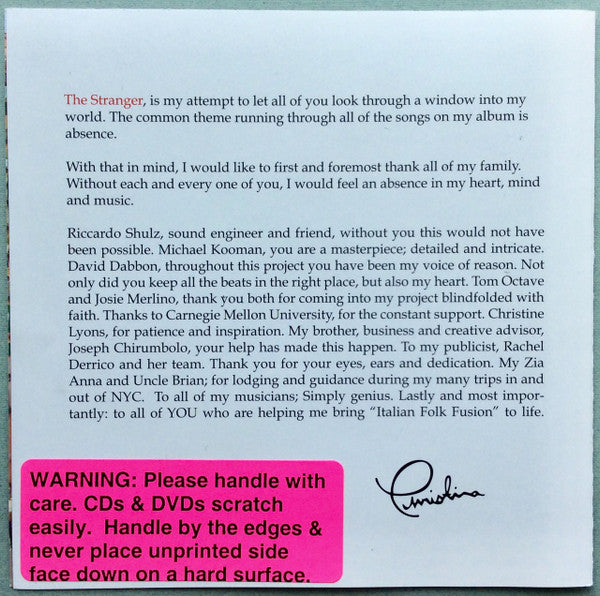 The Stranger, is my attempt to let all of you look through a window into my
world. The common theme running through all of the songs on my album is
absence.
With that in mind, I would like to first and foremost thank all of my family.
Without each and every one of you, I would feel an absence in my heart, mind
and music.
Riccardo Shulz, sound engineer and friend, without you this would not have
been possible. Michael Kooman, you are a masterpiece; detailed and intricate.
David Dabbon, throughout this project you have been my voice of reason. Not
only did you keep all the beats in the right place, but also my heart. Tom Octave
and Josie Merlino, thank you both for coming into my project blindfolded with
faith. Thanks to Carnegie Mellon University, for the constant support. Christine
Lyons, for patience and inspiration. My brother, business and creative advisor,
Joseph Chirumbolo, your help has made this happen. To my publicist, Rachel
Derrico and her team. Thank you for your eyes, ears and dedication. My Zia
Anna and Uncle Brian; for lodging and guidance during my many trips in and
out of NYC. To all of my musicians; Simply genius. Lastly and most impor-
tantly: to all of YOU who are helping me bring “Italian Folk Fusion” to life.
Christina
WARNING: Please handle with
care. CDs & DVDs scratch
easily. Handle by the edges &
never place unprinted side
face down on a hard surface.